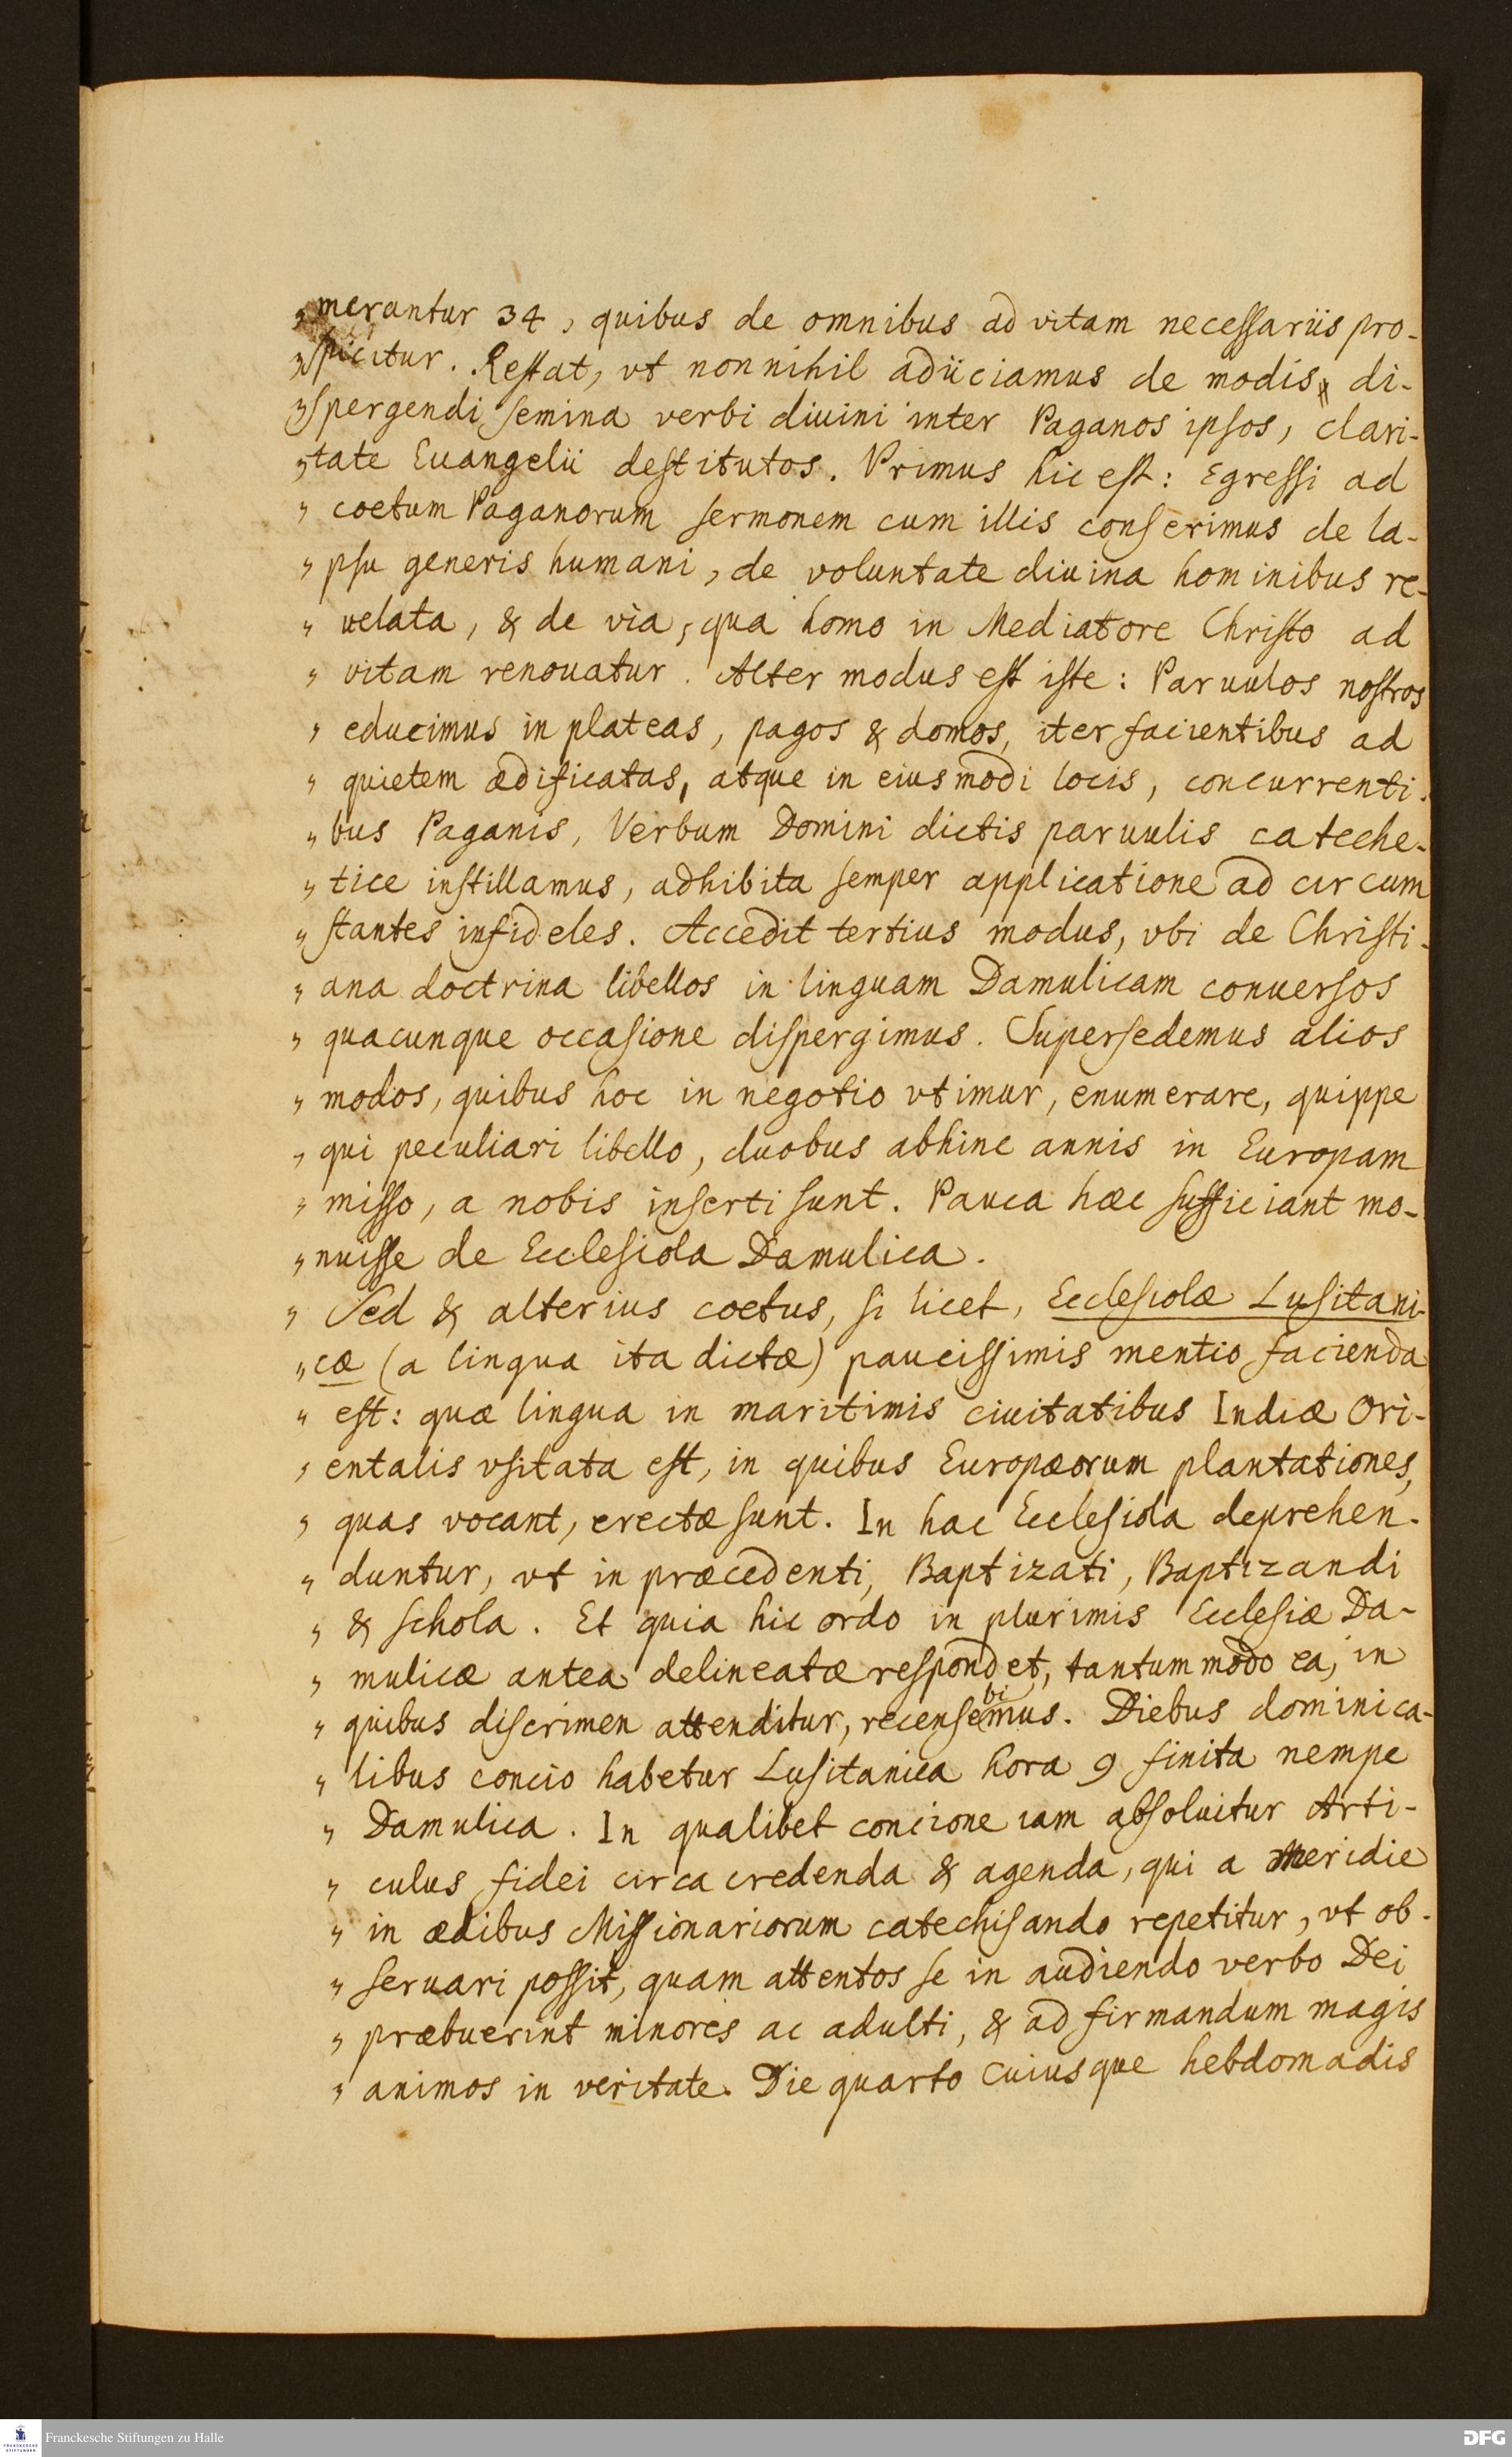 „ merantur 34, quibus de omnibus ad vitam necessariis pro-
„ spicitur. Restat, vt nonnihil adiiciamus de modis di-
„ spergendi semina verbi diuini inter Paganos ipsos, clari-
„ tate Euangelii destitutos. Primus hic est: Egressi ad
„ coetum Paganorum sermonem cum illis conserimus de la-
„ psu generis humani, de voluntate diuina hominibus re-
„ uelata, & de via, qua homo in Mediatore Christo ad
„ vitam renouatur. Alter modus est iste: Paruulos nostros
„ educimus in plateas, pagos & domos, iter facientibus ad
„ quietem ædificatas, atque in eiusmodi locis, concurrenti-
„ bus Paganis, Verbum Domini dictis paruulis cateche-
„ tice instillamus, adhibita semper applicatione ad circum
„ stantes infideles. Accedit tertius modus, vbi de Christi-
„ ana doctrina libellos in linguam Damulicam conuersos
„ quacunque occasione dispergimus. Supersedemus alios
„ modos, quibus hoc in negotio vtimur, enumerare, quippe
„ qui peculiari libello, duobus abhinc annis in Europam
„ misso, a nobis inserti sunt. Pauca hæc sufficiant mo-
„ nuisse de Ecclesiola Damulica.
„ Sed & alterius coetus, si licet, Ecclesiolæ Lusitani-
„ cæ (a lingua ita dictæ) paucissimis mentio facienda
„ est: quæ lingua in maritimis ciuitatibus Indiæ Ori-
„ entalis vsitata est, in quibus Europæorum plantationes,
„ quas vocant, erectæ sunt. In hac Ecclesiola deprehen-
„ duntur, vt in præcedenti, Baptizati, Baptizandi
„ & schola. Et quia hic ordo in plurimis Ecclesiæ Da-
„ mulicæ antea delineatæ respondet, tantummodo ea, in
„ quibus discrimen attenditur, recensebimus. Diebus dominica-
„ libus concio habetur Lusitanica hora 9 finita nempe
„ Damulica. In qualibet concione iam absoluitur Arti-
„ culus fidei circa credenda & agenda, qui a meridie
„ in ædibus Missionariorum catechisando repetitur, vt ob-
„ seruari possit, quam attentos se in audiendo verbo Dei
„ præbuerint minores ac adulti, & ad firmandum magis
„ animos in veritate. Die quarto cuiusque hebdomadis
Franckesche Stiftungen zu Halle
FRANCKESCHE STIFTUNGEN
DFG